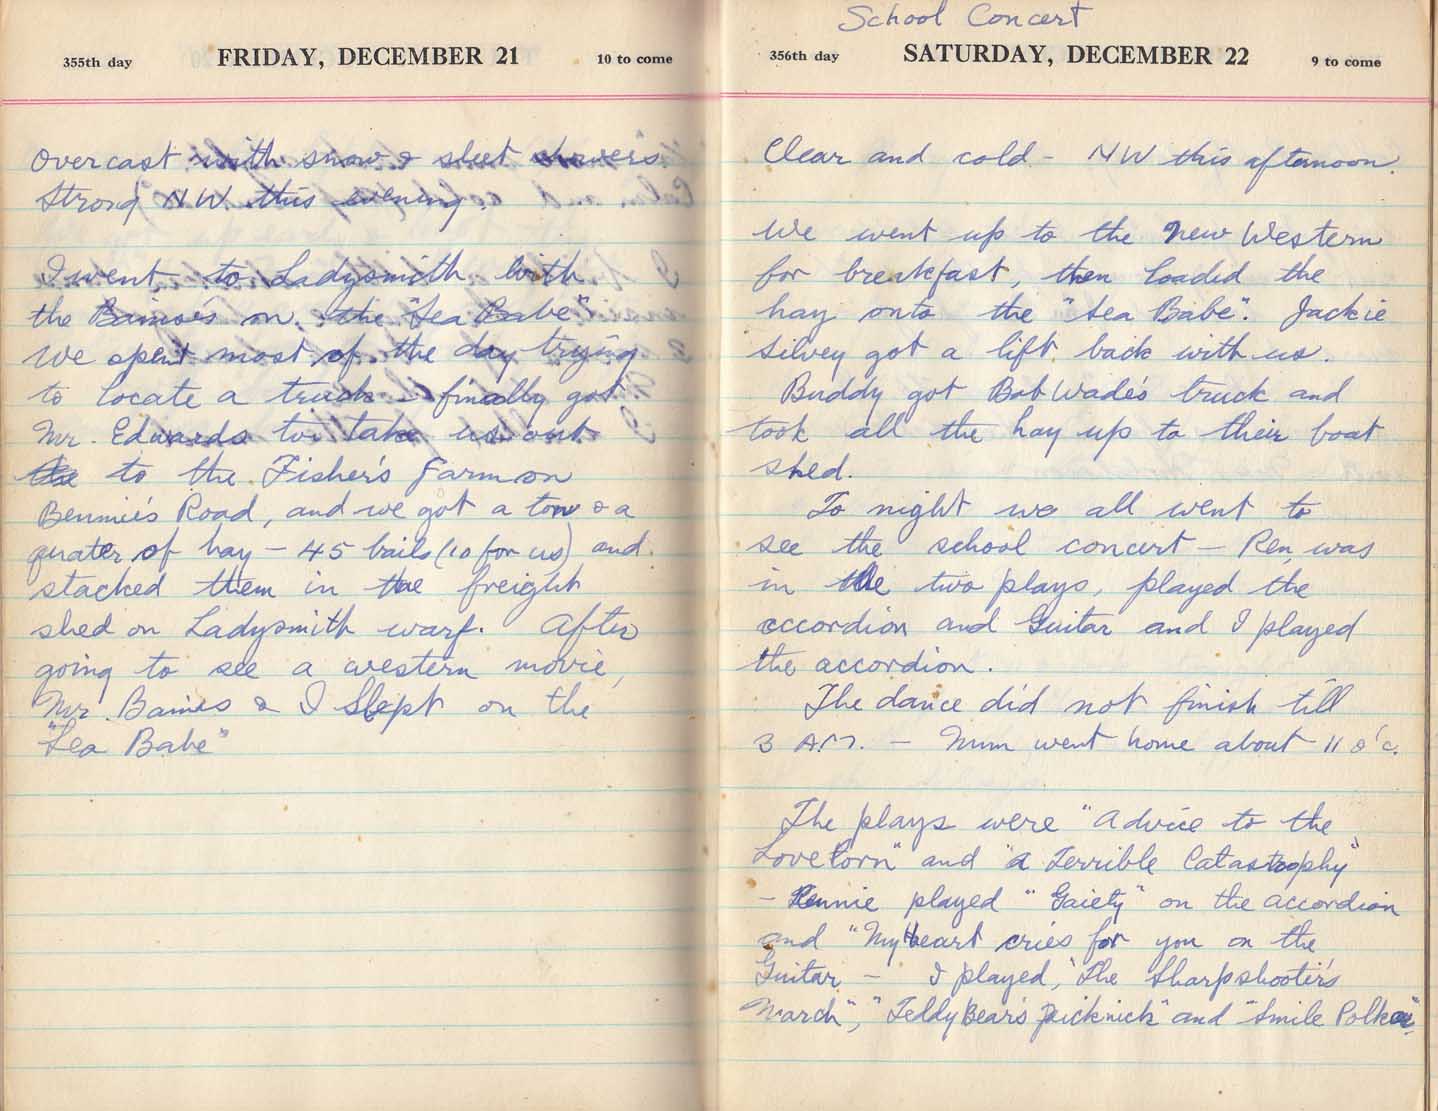 355th day FRIDAY, DECEMBER 21 10 to come
Overcast with snow & sleet showers.
Strong NW this evening.
I went to Ladysmith with
the Baines's on the "Sea Babe"
We spent most of the day trying
to locate a truck - finally got
Mr. Edwards to take us out
to the Fisher's farm on
Bennie's Road, and we got a ton & a
quater of hay - 45 bails (10 for us) and
stacked them in the freight
shed on Ladysmith warf. After
going to see a western movie,
Mr. Baines & I slept on the
"Sea Babe"
School Concert
356th day SATURDAY, DECEMBER 22 9 to come
Clear and cold - NW this afternoon.
We went up to the New Western
for breakfast, then loaded the
hay onto the "Sea Babe". Jackie
Silvey got a lift back with us.
Buddy got Bob Wade's truck and
took all the hay up to their boat
shed.
To night we all went to
see the school concert - Ren, was
in the two plays, played the
accordion and Guitar and I played
the accordion.
The dance did not finish till
3 A.M. - Mum went home about 11 o'c.
The plays were "Advice to the
Lovelorn" and "a Terrible Catastrophy"
- Rennie played "Gaiety" on the accordion
and "My Heart cries for you on the
Guitar - I played, "The Sharpshooter's
March", "Teddy Bear's Picknick" and "Smile Polka".